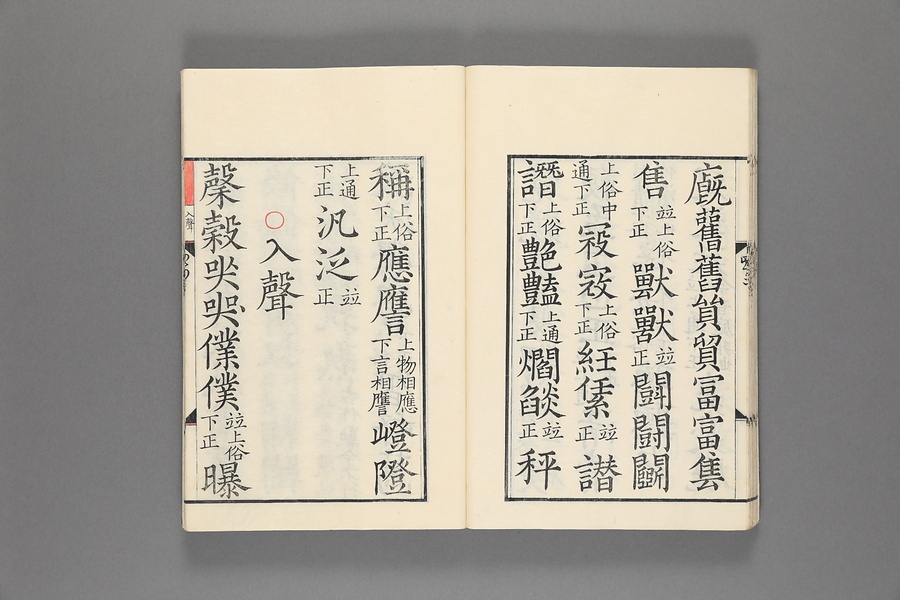 廐舊舊貿貿冨富隻
售並上俗下正獸獸並正鬪鬭鬬
上俗中通下正冦寇上俗下正絍㒍並正譖
譛上俗下正艶豔上通下正爓燄並正秤
稱上俗下正應譍上物相應下言相譍嶝隥
上通下正汎泛並正
入聲
糓穀哭哭僕僕並上俗下正曝
入聲